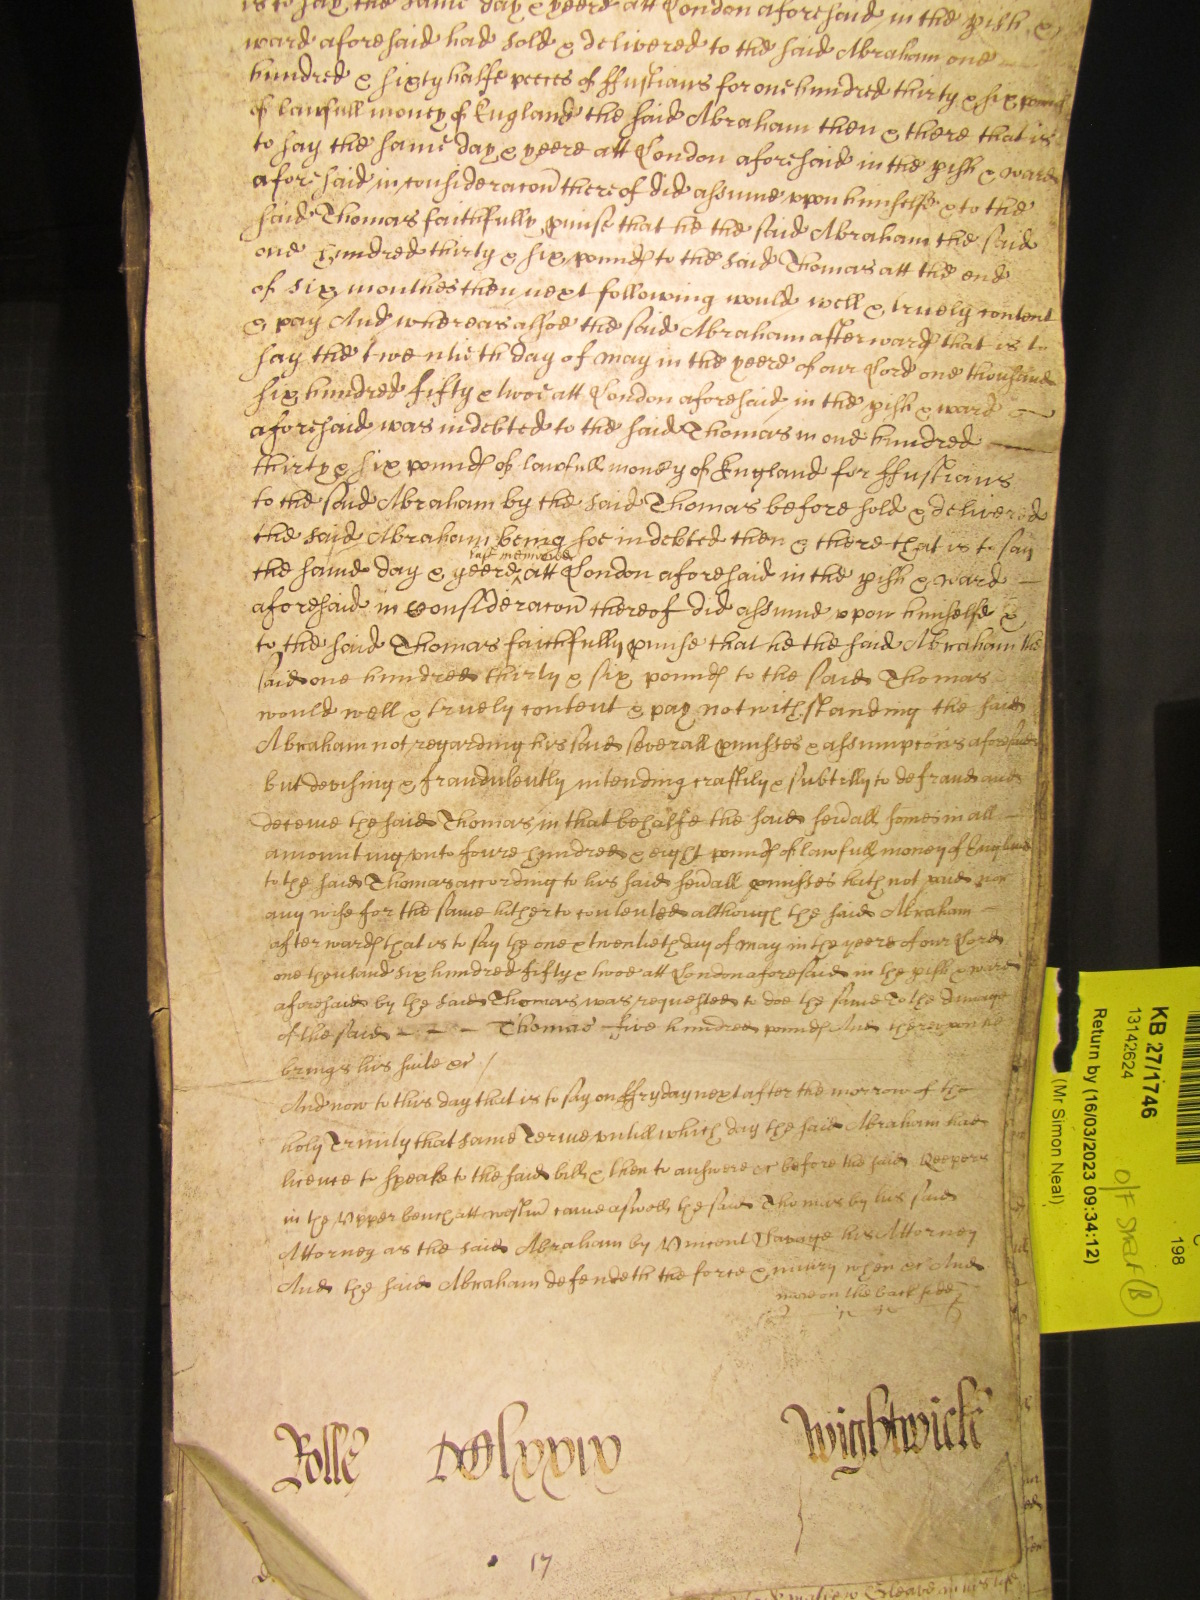 is to say the same day & yeere att London aforesaid in the pish &
ward aforesaid had sold & delivered to the said Abraham one
hundred & sixty halfe peeces of ffustians for one hundred thirty & six pounds
of lawfull money of England the said Abraham then & there that is
to say the same day & yeere att London aforesaid in the pish & ward
aforesaid in consideracon thereof did assume upon himselfe & to the
said Thomas faithfully pmise that he the said Abraham the said
one hundred thirty & six pounds to the said Thomas att the end
of six monthes then next following would well & truely content
& pay And whereas alsoe the said Abraham afterwards that is to
say the twentieth day of May in the yeere of our Lord one thousand
six hundred fifty & twoe att London aforesaid in the pish & ward
aforesaid was indebted to the said Thomas in one hundred
thirty & six pounds of lawfull money of England for ffustians
to the said Abraham by the said Thomas before sold & delivered
the said Abraham being soe indebted then & there that is to say
last menconed
the same day & yeere att London aforesaid in the pish & ward
aforesaid in consideracon thereof did assume upon himselfe &
to the said Thomas faithfully pmise that he the said Abraham the
said one hundred thirty & six pounds to the said Thomas
would well & truely content & pay notwithstanding the said
Abraham not regarding his said severall pmisses & assumpcons aforesaid
but devising & fraudulently intending craftily & subtilly to defraud and
deceive the said Thomas in that behalfe the said sevall somes in all
amounting unto foure hundred & eight pounds of lawfull money of England
to the said Thomas according to his said sevall pmisses hath not paid nor
any wise for the same hitherto contented although the said Abraham
afterwards that is to say the one & twentieth day of May in the yeere of our Lord
one thousand six hundred fifty & twoe att London aforesaid in the pish & ward
aforesaid by the said Thomas was requested to doe the same To the damage
of the said - - - Thomas five hundred pounds And thereupon he
brings his suite &c /
And now to this day that is to say on ffryday next after the morrow of the
holy Trinity that same Terme untill which day the said Abraham had
licence to speake to the said bill & then to answere &c before the said Keepers
in the Upper bench att Westmr came aswell the said Thomas by his said
Attorney as the said Abraham by Vincent Savage his Attorney
And the said Abraham defendeth the force & iniury when &c And
more on the back side
Rolle DCClxxix Wightwicke
17
KB 27/1746
13142624
Return by (16/03/2023 09:34:12)
(Mr Simon Neal)
198